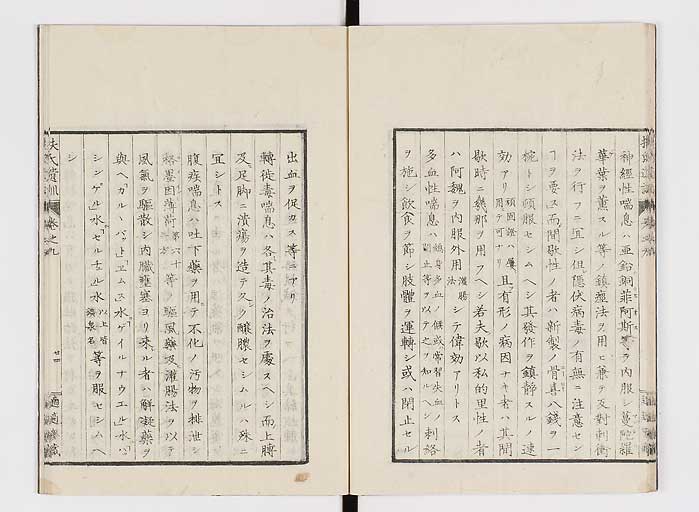 神經性喘息ハ亜鉛銅菲阿斯等ヲ内服シ蔓陀羅
華葉ヲ薫スル等ノ鎮痙法ヲ用ヒ兼テ反對刺衝
法ヲ行フニ宜シ但隠伏病毒ノ有無ニ注意セン
ヿヲ要ス而間歇性ノ者ハ新製ノ骨喜一錢ヲ一
椀トシ頓服セシムヘシ其發作ヲ鎮靜スル ノ速
効アリ 頑固證ハ屢用テ可ナリ 且有形ノ病因ナキ者ハ其間
歇時ニ幾那ヲ用フヘシ若夫歇以私的里性ノ者
ハ阿魏ヲ内服外用 灌腸法 シテ偉効アリトス
多血性喘息ハ 多血ノ候或ハ常習失血ノ 閉止等ヲ以テ之ヲ知ルヘシ 刺絡
ヲ施シ飲食ヲ節シ肢體ヲ運轉シ或ハ閉止セル
出血ヲ促カス等ニアリ
轉徙毒喘息ハ各其毒ノ治法ヲ處スヘシ而上膊
及足脚ニ潰瘍ヲ造テ久ク釀膿セシムルハ殊ニ
宜シトス
腹疾喘息ハ吐下藥ヲ用テ不化ノ汚物ヲ排泄シ
格墨因薄荷 第六十 等ノ驅風藥及灌腸法ヲ以テ
風氣ヲ驅散シ内臓壅塞ヨリ來ル者ハ解凝藥ヲ
與ヘ「カルヽバット」「エムス水」「ゲイルナウエル水」「ハ
シンゲル水」「セルテル水 以上皆鑛泉名 等ヲ服セシムヘ
シ
扶氏遺訓
卷之九
廿四
適適齋藏